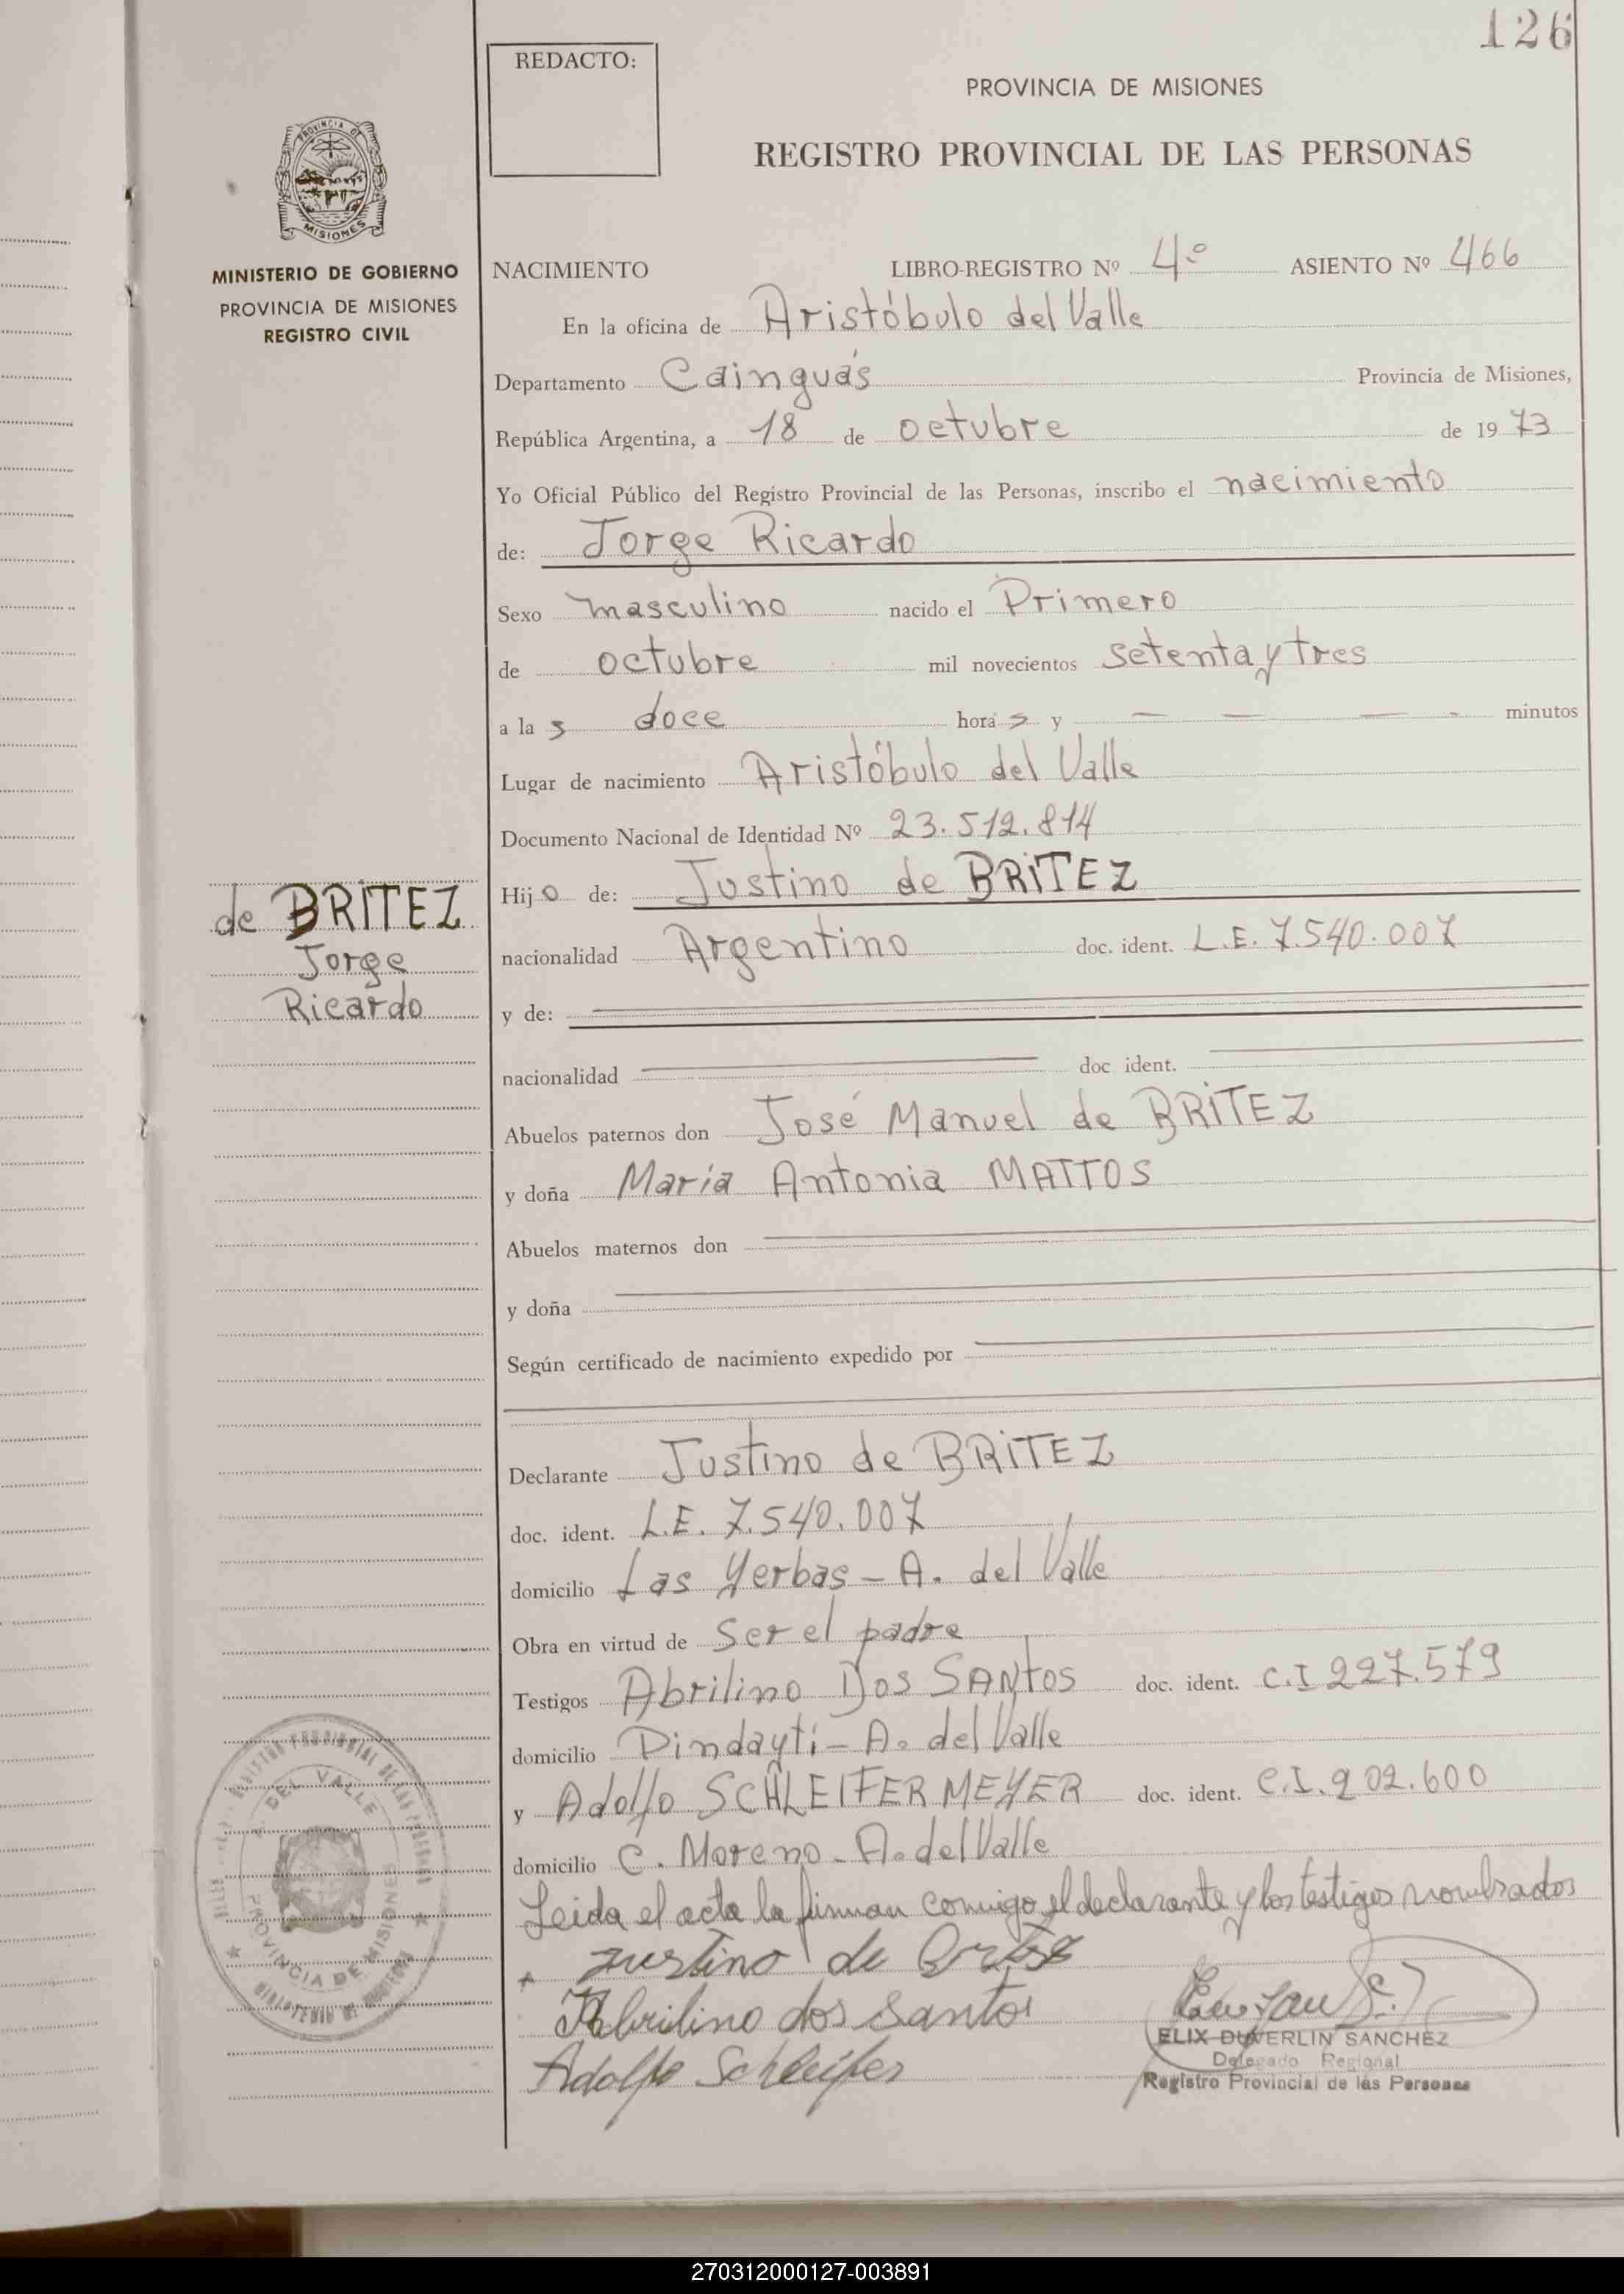 126
REDACTO:
PROVINCIA DE MISIONES
REGISTRO PROVINCIAL DE LAS PERSONAS
PROVINCIA DE
MISIONES
MINISTERIO DE GOBIERNO
PROVINCIA DE MISIONES
REGISTRO CIVIL
NACIMIENTO LIBRO-REGISTRO Nº 4º ASIENTO Nº 466
En la oficina de Aristóbulo del Valle
Departamento Cainguás Provincia de Misiones,
República Argentina, a 18 de octubre de 1973
Yo Oficial Público del Registro Provincial de las Personas, inscribo el nacimiento
de: Jorge Ricardo
Sexo masculino nacido el Primero
de octubre mil novecientos setenta y tres
a la s doce hora s y — — — - minutos
Lugar de nacimiento Aristóbulo del Valle
Documento Nacional de Identidad Nº 23.512.814
Hijo de: Justino de BRITEZ
nacionalidad Argentino doc. ident. L.E. 7.540.007
y de:
nacionalidad doc ident.
Abuelos paternos don José Manuel de BRITEZ
y doña María Antonia MATTOS
Abuelos maternos don
y doña
Según certificado de nacimiento expedido por
Declarante Justino de BRITEZ
doc. ident. L.E. 7.540.007
domicilio Las Yerbas - A. del Valle
Obra en virtud de ser el padre
Testigos Abrilino DOS SANTOS doc. ident. C.I 227.579
domicilio Pindaytí - A. del Valle
y Adolfo SCHLEIFER MEYER doc. ident. C.I. 202.600
domicilio C. Moreno - A. del Valle
Leida el acta la firman conmigo el declarante y los testigos nombrados
justino de Britez
Abrilino dos Santos
Adolfo Schleifer
ELIX DUVERLIN SANCHEZ
Delegado Regional
Registro Provincial de las Personas
de BRITEZ
Jorge
Ricardo
REGISTRO PROVINCIAL DE LAS PERSONAS
A. DEL VALLE
PROVINCIA DE MISIONES
MINISTERIO DE GOBIERNO
270312000127-003891